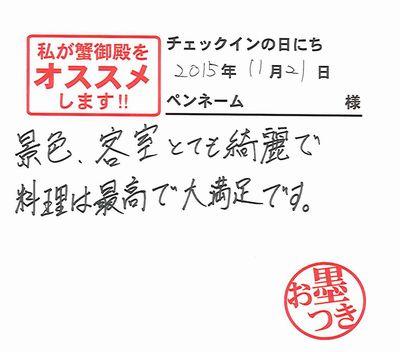 私が蟹御殿を
オススメ
します!!
チェックインの日にち
2015年 11月21日
ペンネーム 様
景色、客室とても綺麗で
料理は最高で大満足です。
お墨つき